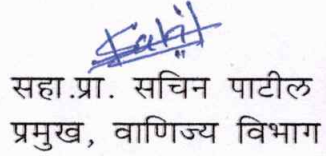 सहा.प्रा. सचिन पाटील
प्रमुख, वाणिज्य विभाग